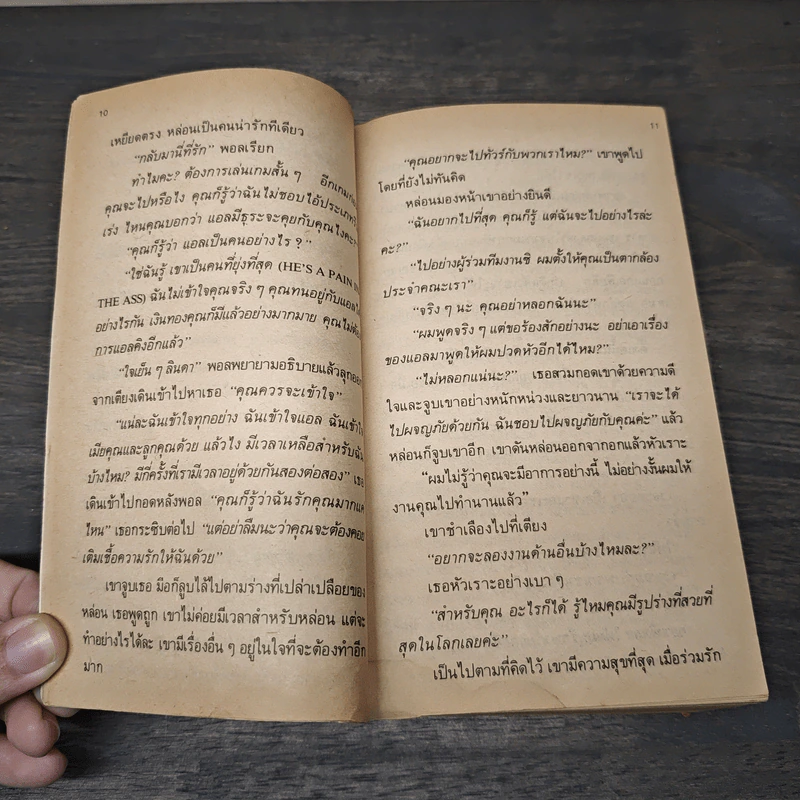 10
เหยียดตรง หล่อนเป็นคนน่ารักทีเดียว
“กลับมานี่ที่รัก” พอลเรียก
ทำไมคะ? ต้องการเล่นเกมสั้น ๆ อีกเกม
คุณจะไปหรือไง คุณก็รู้ว่าฉันไม่ชอบไอ้ประเภท
เร่ง ไหนคุณบอกว่า แอลมีธุระจะคุยกับคุณไงคะ
“คุณก็รู้ว่า แอลเป็นคนอย่างไร ?”
“ใช่ฉันรู้ เขาเป็นคนที่ยุ่งที่สุด (HE’S A PAIN IN
THE ASS) ฉันไม่เข้าใจคุณจริง ๆ คุณทนอยู่กับแอล
อย่างไรกัน เงินทองคุณก็มีแล้วอย่างมากมาย คุณไม่ต้อง
การแอลคิงอีกแล้ว”
“ใจเย็น ๆ ลินดา” พอลพยายามอธิบายแล้วลุก
จากเตียงเดินเข้าไปหาเธอ “คุณควรจะเข้าใจ”
“แน่ละฉันเข้าใจทุกอย่าง ฉันเข้าใจแอล ฉันเข้าใจ
เมียคุณและลูกคุณด้วย แล้วไง มีเวลาเหลือสำหรับฉัน
บ้างไหม? มีกี่ครั้งที่เรามีเวลาอยู่ด้วยกันสองต่อสอง” เธอ
เดินเข้าไปกอดหลังพอล “คุณก็รู้ว่าฉันรักคุณมากแค่
ไหน” เธอกระซิบต่อไป “แต่อย่าลืมนะว่าคุณจะต้องคอย
เติมเชื้อความรักให้ฉันด้วย”
เขาจูบเธอ มือก็ลูบไล้ไปตามร่างที่เปล่าเปลือยของ
หล่อน เธอพูดถูก เขาไม่ค่อยมีเวลาสำหรับหล่อน แต่จะ
ทำอย่างไรได้ละ เขามีเรื่องอื่น ๆ อยู่ในใจที่จะต้องทำอีก
มาก
11
“คุณอยากจะไปทัวร์กับพวกเราไหม?” เขาพูดไป
โดยที่ยังไม่ทันคิด
หล่อนมองหน้าเขาอย่างยินดี
“ฉันอยากไปที่สุด คุณก็รู้ แต่ฉันจะไปอย่างไรล่ะ
คะ?”
“ไปอย่างผู้ร่วมทีมงานซิ ผมตั้งให้คุณเป็นตากล้อง
ประจำคณะเรา”
“จริง ๆ นะ คุณอย่าหลอกฉันนะ”
“ผมพูดจริง ๆ แต่ขอร้องสักอย่างนะ อย่าเอาเรื่อง
ของแอลมาพูดให้ผมปวดหัวอีกได้ไหม?”
“ไม่หลอกแน่นะ?” เธอสวมกอดเขาด้วยความดี
ใจและจูบเขาอย่างหนักหน่วงและยาวนาน “เราจะได้
ไปผจญภัยด้วยกัน ฉันชอบไปผจญภัยกับคุณค่ะ” แล้ว
หล่อนก็จูบเขาอีก เขาดันหล่อนออกจากอกแล้วหัวเราะ
“ผมไม่รู้ว่าคุณจะมีอาการอย่างนี้ ไม่อย่างงั้นผมให้
งานคุณไปทำนานแล้ว”
เขาชำเลืองไปที่เตียง
“อยากจะลองงานด้านอื่นบ้างไหมละ?”
เธอหัวเราะอย่างเบา ๆ
“สำหรับคุณ อะไรก็ได้ รู้ไหมคุณมีรูปร่างที่สวยที่
สุดในโลกเลยค่ะ”
เป็นไปตามที่คิดไว้ เขามีความสุขที่สุด เมื่อร่วมรัก